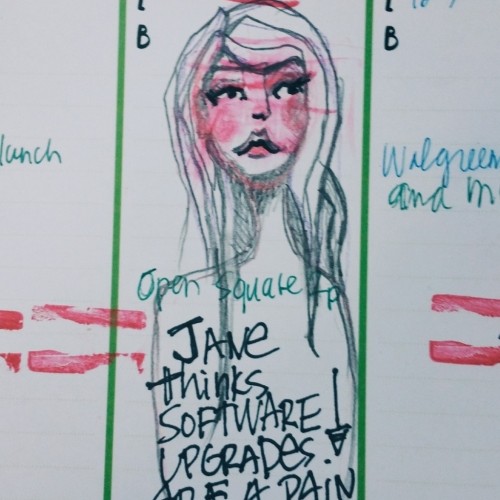 L
B
lunch
Open Square Up
JANE
thinks
SOFTWARE
UPGRADES.
ARE A PAIN
B
Walgreen
and m